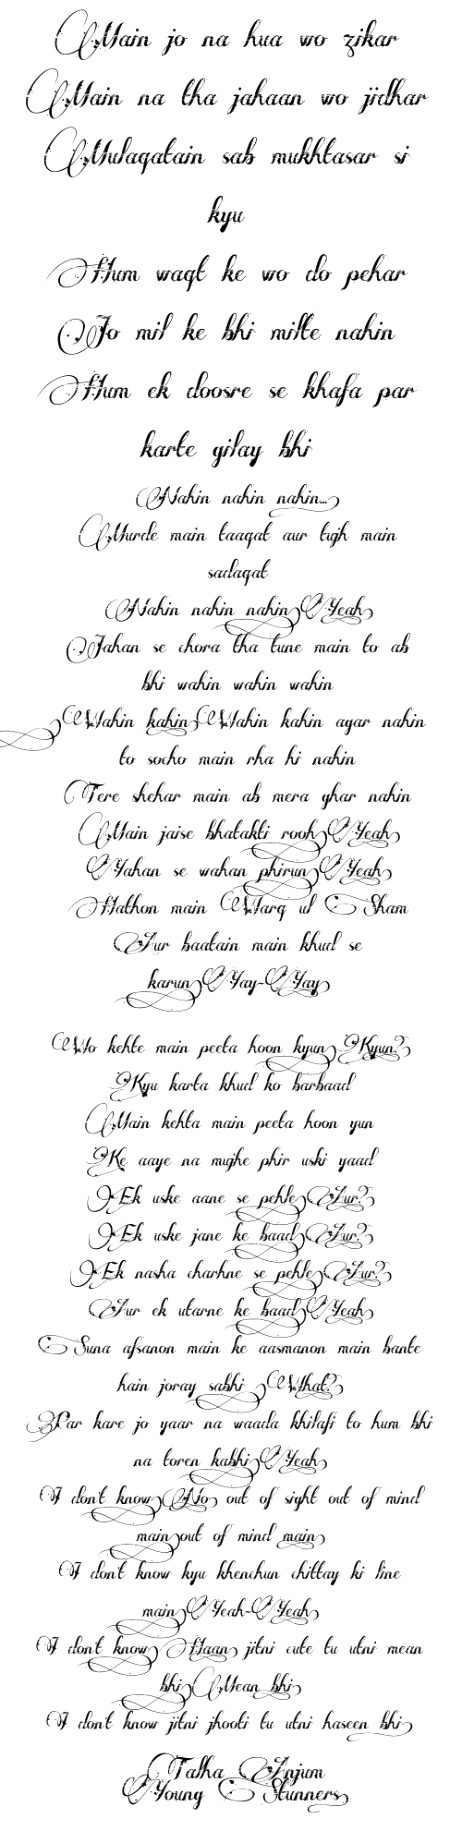 Main jo na hua wo zikar
Main na tha jahaan wo jidhar
Mulaqatain sab mukhtasar si
kyu
Hum waqt ke wo do pehar
Jo mil ke bhi milte nahin
Hum ek doosre se khafa par
karte gilay bhi
Nahin nahin nahin...
Murde main taaqat aur tigh main
sadaqat
Nahin nahin nahin Yeah
Jahan se chora tha tune main to ab
bhi wahin wahin wahin
Wahin kahin Wahin kahin agar nahin
to socho main rha hi nahin
Tere shehar main ab mera ghar nahin
Main jaise bhatakti rooh Yeah
Yahan se wahan phirun Yeah
Hathon main Warq ul Sham
Aur baatain main khud se
karun Yay-Yay
Wo kehte main peeta hoon kyun Kyun?
Kyu karta khud ko barbaad
Main kehta main peeta hoon yun
Ke aaye na mujhe phir uski yaad
Ek uske aane se pehle Aur?
Ek uske jane ke baad Aur?
Ek nasha charhne se pehle Aur?
Aur ek utarne ke baad Yeah
Suna afsanon main ke aasmanon main bante
hain joray sabhi What?
Par kare jo yaar na waada khilafi to hum bhi
na toren kabhi Yeah
I don't know No out of sight out of mind
main out of mind main
I don't know kyu khenchun chittay ki line
main Yeah-Yeah
I don't know Haan jitni cute tu utni mean
bhi Mean bhi
I don't know jitni jhooti tu utni haseen bhi
Talha Anjum
Young Stunners